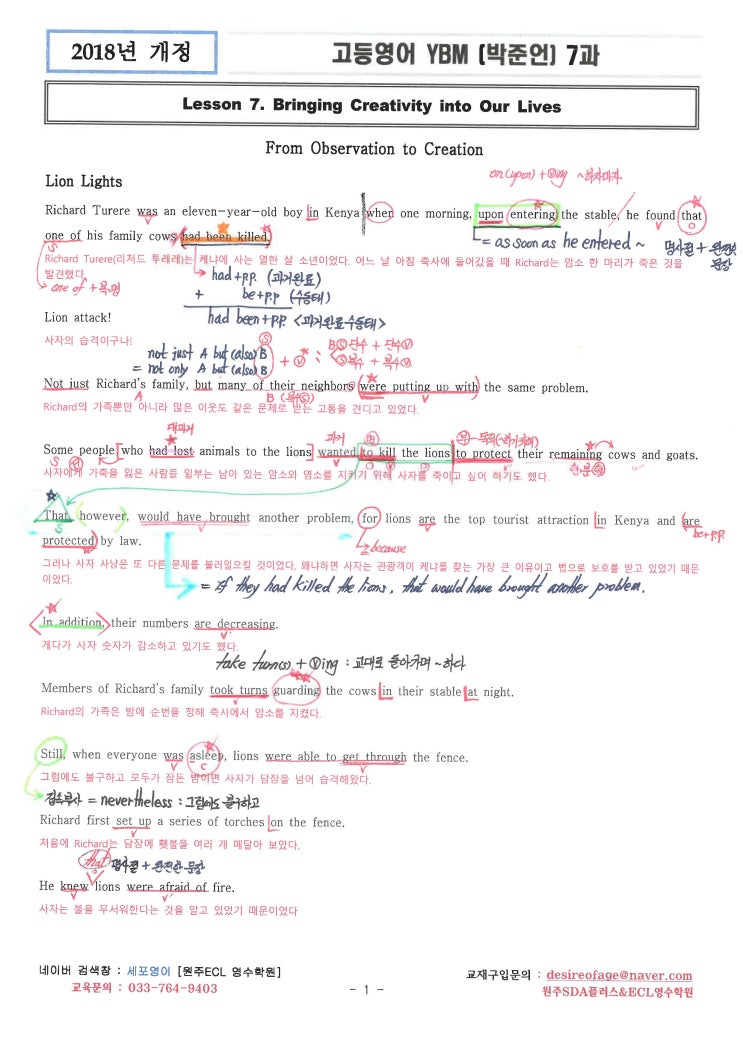 2018년 개정
고등영어 YBM (박준언) 7과
Lesson 7. Bringing Creativity into Our Lives
From Observation to Creation
on(upon) + ⓥing ~하자마자
Lion Lights
Richard Turere was an eleven-year-old boy in Kenya when one morning, upon entering the stable, he found that
one of his family cows had been killed.
= as soon as he entered ~
명사절 + 완전한 문장
Richard Turere(리처드 투레레)는 케냐에 사는 열한 살 소년이었다. 어느 날 아침 축사에 들어갔을 때 Richard는 암소 한 마리가 죽은 것을
발견했다.
one of + 복.명
had + p.p. (과거완료)
+ be + p.p (수동태)
Lion attack!
had been + p.p. <과거완료수동태>
사자의 습격이구나!
not just A but (also) B
= not only A but (also) B
+ ⓥ :
B ⓢ단수 + 단수ⓥ
ⓢ복수 + 복수ⓥ
Not just Richard's family, but many of their neighbors were putting up with the same problem.
A
B (복수ⓢ)
V
Richard의 가족뿐만 아니라 많은 이웃도 같은 문제로 받는 고통을 견디고 있었다.
대과거
과거
Some people who had lost animals to the lions wanted to kill the lions to protect their remaining cows and goats.
사자에게 가축을 잃은 사람들 일부는 남아 있는 암소와 염소를 지키기 위해 사자를 죽이고 싶어 하기도 했다.
That, however, would have brought another problem, for lions are the top tourist attraction in Kenya and are
be+p.p.
protected by law.
because
그러나 사자 사냥은 또 다른 문제를 불러일으킬 것이었다. 왜냐하면 사자는 관광객이 케냐를 찾는 가장 큰 이유이고 법으로 보호를 받고 있었기 때문
이었다.
= If they had killed the lions, that would have brought another problem.
In addition, their numbers are decreasing.
게다가 사자 숫자가 감소하고 있기도 했다.
take turn(s) + ⓥing : 교대로 돌아가며 ~하다
Members of Richard's family took turns guarding the cows in their stable at night.
Richard의 가족은 밤에 순번을 정해 축사에서 암소를 지켰다.
Still, when everyone was asleep, lions were able to get through the fence.
그럼에도 불구하고 모두가 잠든 밤이면 사자가 담장을 넘어 습격해왔다.
접속부사 = nevertheless : 그럼에도 불구하고
Richard first set up a series of torches on the fence.
처음에 Richard는 담장에 횃불을 여러 개 매달아 보았다.
that 명사절 + 완전한 문장
He knew lions were afraid of fire.
사자는 불을 무서워한다는 것을 알고 있었기 때문이었다
네이버 검색창 : 세포영어 [원주ECL 영수학원]
교재구입문의 : desireofage@naver.com
교육문의 : 033-764-9403
- 1 -
원주SDA플러스&ECL영수학원